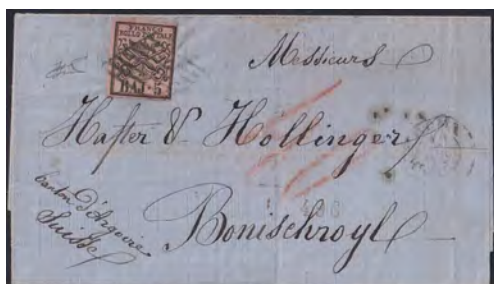 FRANCO
BOLLO POSTALE
BAJ·5
Messieurs
Hafter & Hollinger
Canton d'Argovie
Suisse
Bonischroyl